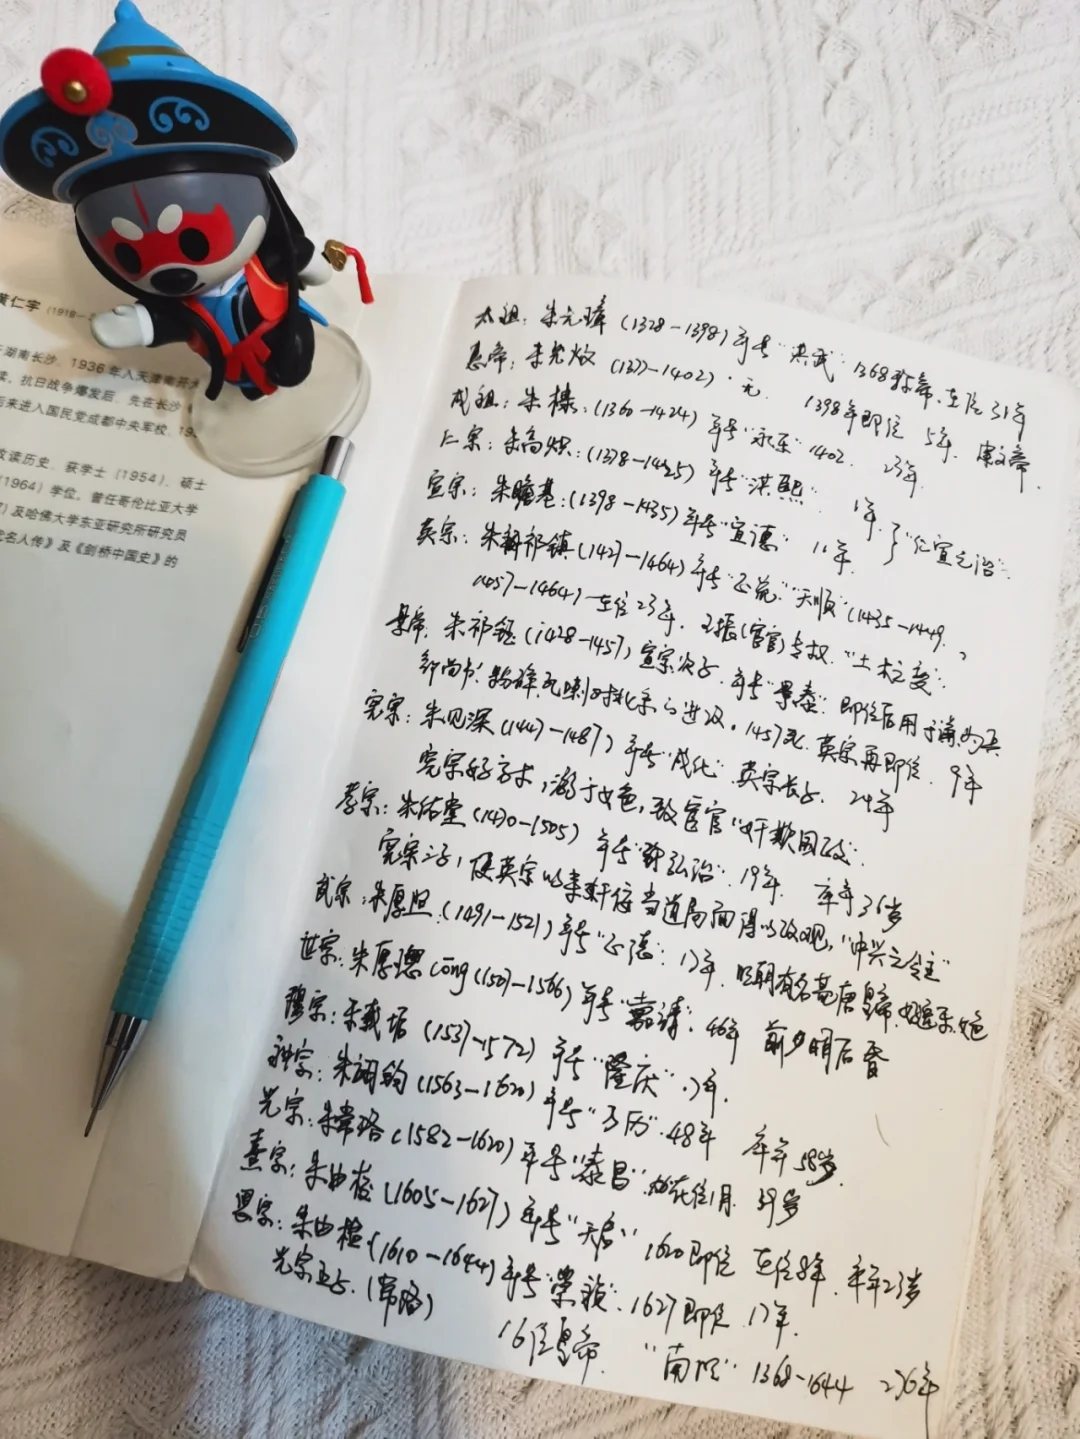 黄仁宇 (1918－2
湖南长沙。1936年入天津南开大
读。抗日战争爆发后，先在长沙
后来进入国民党成都中央军校，19
攻读历史，获学士（1954）、硕士
（1964）学位。曾任哥伦比亚大学
7）及哈佛大学东亚研究所研究员
代名人传》及《剑桥中国史》的
太祖：朱元璋 (1328-1398) 年号"洪武" 1368称帝、在位31年
惠帝：朱允炆 (1377-1402)·无. 1398年即位 5年. 建文帝
成祖：朱棣：(1360-1424) 年号"永乐" 1402. 23年.
仁宗：朱高炽：(1378-1425) 年号"洪熙". 1年.
宣宗：朱瞻基：(1398-1435) 年号"宣德" 11年. "仁宣之治".
英宗：朱祁镇 (1427-1464) 年号"正统""天顺" (1435-1449,
1457-1464) 在位23年. 王振(宦官)专权. "土木之变".
景帝. 朱祁钰 (1428-1457) 宣宗次子. 年号"景泰". 即位后用于谦为兵
部尚书. 粉碎瓦喇对北京的进攻. 1457死. 英宗再即位. 9年
宪宗：朱见深 (1447-1487) 年号"成化". 英宗长子. 24年
宪宗好方术，溺于女色，致宦官"奸欺国政".
孝宗：朱佑堂 (1470-1505) 年号"弘治". 19年. 卒年36岁
宪宗之子，使英宗以来奸佞当道局面得以改观，"中兴之令主"
武宗：朱厚照. (1491-1521) 年号"正德". 17年. 明朝有名荒唐皇帝. 好逸乐女色
世宗：朱厚璁 cōng (1507-1566) 年号"嘉靖". 46年 前明后昏
穆宗：朱载垢 (1537-1572) 年号"隆庆". 7年.
神宗：朱翊钧 (1563-1620) 年号"万历". 48年 卒年58岁.
光宗：朱常洛 (1582-1620) 年号"泰昌". 在位1月. 39岁
熹宗：朱由校 (1605-1627) 年号"天启" 1620即位 在位8年. 卒年23岁
思宗：朱由检 (1610-1644) 年号"崇祯". 1627即位 17年.
光宗五子. (常洛)
16位皇帝. "南明" 1368-1644 276年